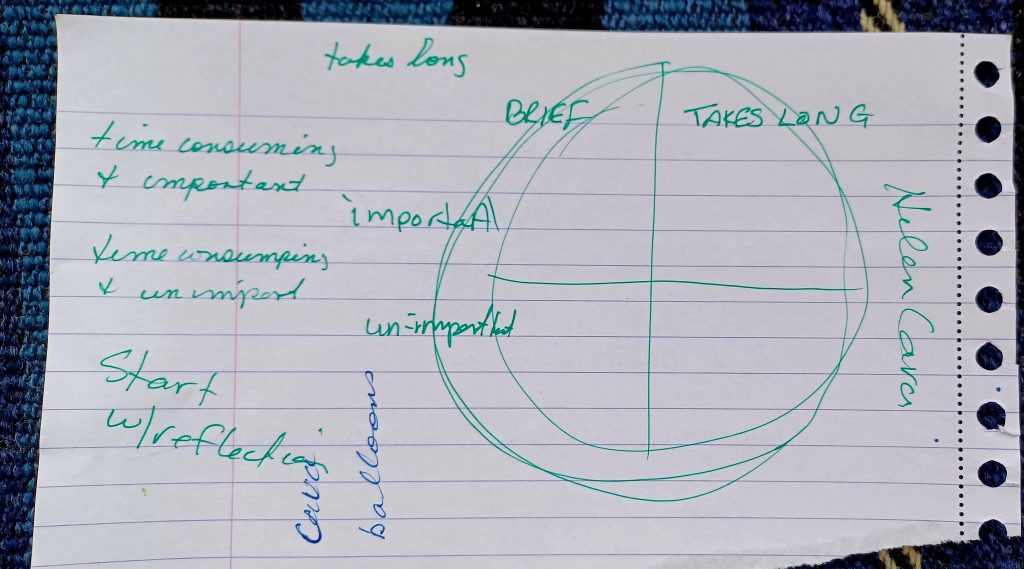 takes long
BRIEF
TAKES LONG
time consuming
+ important
important
time consumping
+ unimport
un-important
Start
w/reflection
balloons
Helen